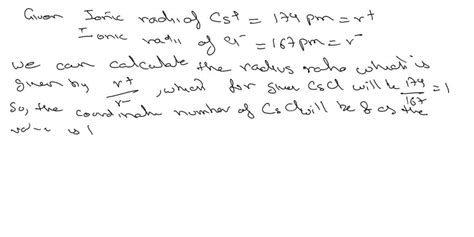 Given Ionic radii of Cs⁺ = 174 pm = r⁺
Ionic radii of Cl⁻ = 167 pm = r⁻
we can calculate the radius ratio which is
given by r⁺/r⁻, which for given CsCl will be 174/167 = 1
So, the coordinate number of CsCl will be 8 as the
is 1